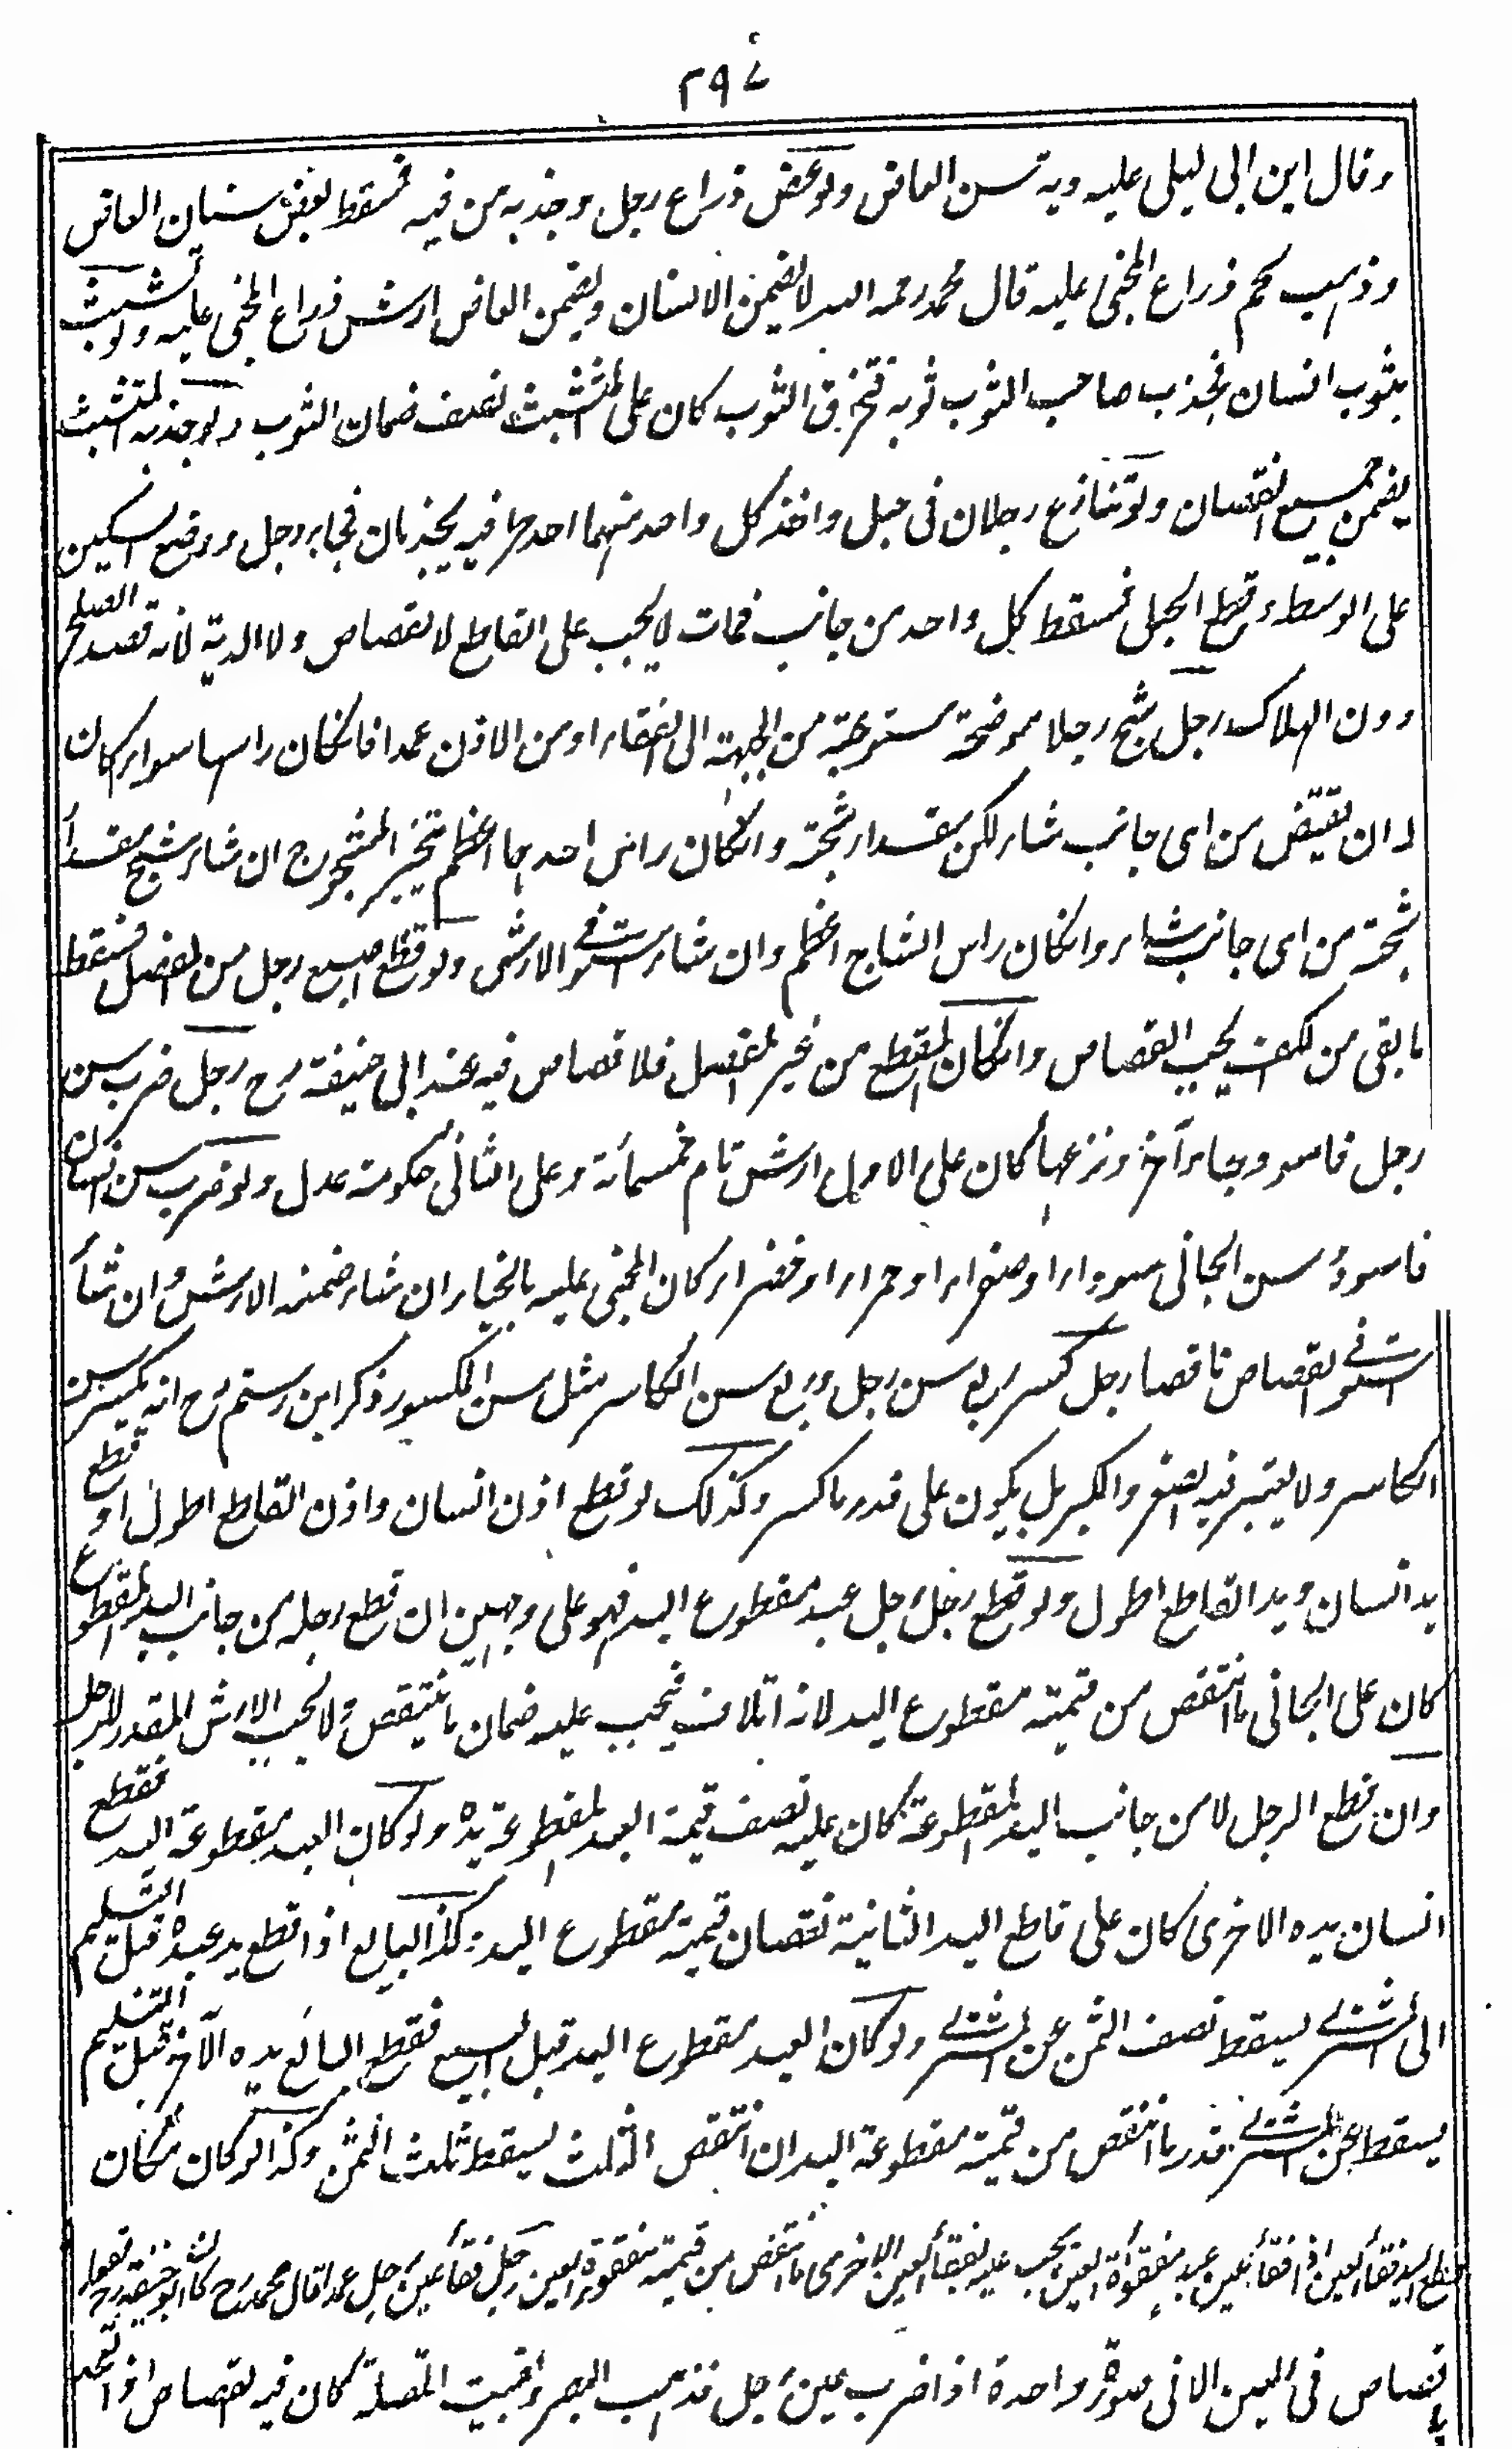 ٢٩٤
وقال ابن ابى ليلى عليه دية سن العاض ولو عض ذراع رجل وجذبه من فيه فسقط بعض اسنان العاض
وذهب لحم ذراع المجنى عليه قال محمد رحمه الله لا يضمن الاسنان ويضمن العاض ارش ذراع المجنى عليه ولو تشبث
بثوب انسان فجذب صاحب الثوب ثوبه فتخرق الثوب كان على المتشبث نصف ضمان الثوب ولو جذبه المتشبث
يضمن جميع النقصان ولو تنازع رجلان فى حبل واخذ كل واحد منهما احد طرفيه يجذبان فجاء رجل ووضع السكين
على الوسط وقطع الحبل فسقط كل واحد من جانب فمات لا يجب على القاطع لا القصاص ولا الدية لانه قصد الصلح
دون الهلاك رجل شج رجلا موضحة مستوعبة من الجبهة الى القفاء او من الاذن عمدا فانكان راسها سواء كان
له ان يقتص من اى جانب شاء لكن بمقدار شجته وانكان راس احدهما اعظم يتخير المشجوج ان شاء شج مقدار
شجته من اى جانب شاء وانكان راس الشاج اعظم وان شاء استوفى الارش ولو قطع اصبع رجل من المفصل فسقط
ما بقى من الكف يجب القصاص وانكان القطع من غير المفصل فلا قصاص فيه عند ابى حنيفة رح رجل ضرب سن
رجل فاسود وجاء آخر ونزعها كان على الاول ارش تام خمسمائة وعلى الثانى حكومة عدل ولو ضرب سن انسان
فاسود وسن الجانى سوداء او صفراء او حمراء او خضراء كان المجنى عليه بالخيار ان شاء ضمنه الارش وان شاء
استوفى القصاص ناقصا رجل كسر ربع سن رجل وربع سن الكاسر مثل سن المكسور ذكر ابن رستم رح انه يكسر من سن
الكاسر ولا يعتبر فيه الصغر والكبر بل يكون على قدر ما كسر وكذلك لو قطع اذن انسان واذن القاطع اطول او قطع
يد انسان ويد القاطع اطول ولو قطع رجل رجل عبد مقطوع اليد فهو على وجهين ان قطع رجله من جانب اليد المقطوع
كان على الجانى ما انتقص من قيمته مقطوع اليد لانه اتلاف فيجب عليه ضمان ما ينتقص ولا يجب الارش المقدر للرجل
وان قطع الرجل لا من جانب اليد المقطوعة كان عليه نصف قيمة العبد المقطوعة يده ولو كان العبد مقطوعة اليد فقطع
انسان يده الاخرى كان على قاطع اليد الثانية نقصان قيمته مقطوع اليد وكذا البايع اذا قطع يد عبده قبل التسليم
الى المشترى يسقط نصف الثمن عن المشترى ولو كان العبد مقطوع اليد قبل البيع فقطع البائع يده الآخر قبل التسليم
يسقط عن المشترى قدر ما انتقص من قيمته مقطوعة اليد ان انتقص الثلث يسقط ثلث الثمن وكذا لو كان مكان
قطع اليد فقأ العين اذا فقأ عين عبد مفقوءة العين يجب عليه بفقأ العين الاخرى ما انتقص من قيمته مفقوءة العين رجل فقأ عين رجل عمدا قال محمد رح كان ابو حنيفة رح يقول لا
قصاص فى العين الا فى صورة واحدة اذا ضرب عين رجل فذهب البصر وبقيت المقلة كان فيه القصاص اذا تعمد